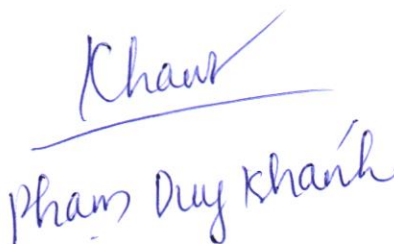 Khanh
Phạm Duy Khánh